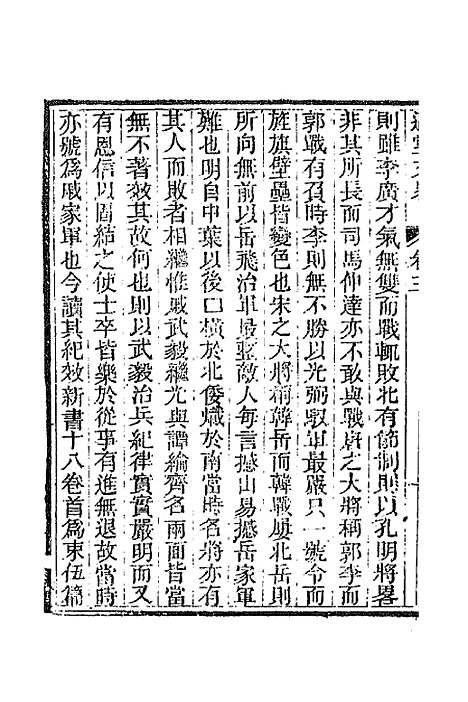 卷三
則雖李廣才氣無雙而戰輒敗北有節制則以孔明將畧
非其所長而司馬仲達亦不敢與戰唐之大將稱郭李而
郭戰有召時李則無不勝以光弼馭軍最嚴只一號令而
旌旗壁壘皆變色也宋之大將稱韓岳而韓戰屢北岳則
所向無前以岳飛治軍最堅敵人每言撼山易撼岳家軍
難也明自中葉以後口橫於北倭熾於南當時名將亦有
其人而敗者相繼惟戚武毅繼光與譚綸齊名兩面皆當
無不著效其故何也則以武毅治兵紀律實實嚴明而又
有恩信以固結之使士卒皆樂於從事有進無退故當時
亦號爲戚家軍也今讀其紀效新書十八卷首爲束伍篇